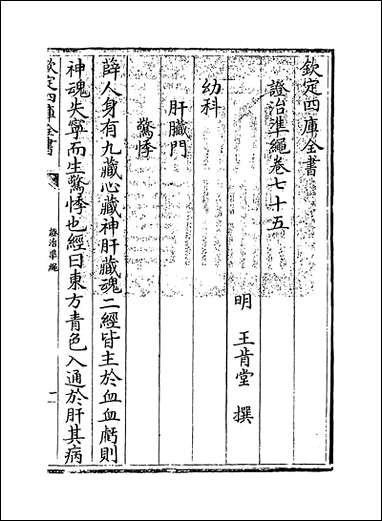 欽定四庫全書
證治準繩卷七十五
明 王肯堂 撰
幼科
肝臟門
驚悸
薛人身有九藏心藏神肝藏魂二經皆主於血血虧則
神魂失寧而生驚悸也經曰東方青色入通於肝其病
欽定四庫全書
證治準繩
一